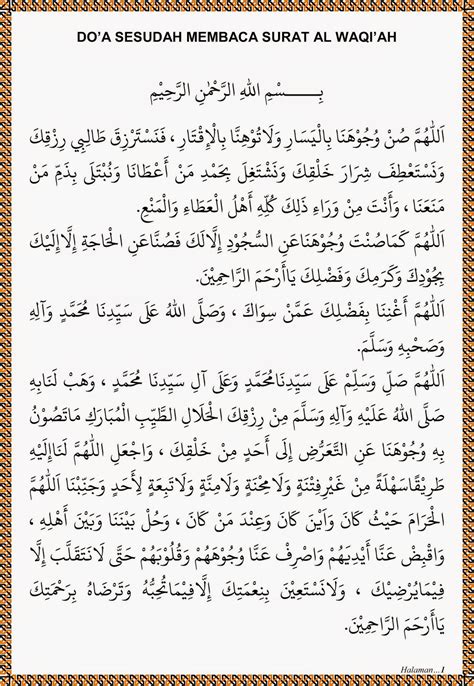 DO'A SESUDAH MEMBACA SURAT AL WAQI'AH
بِـــــسْمِ اللهِ الرَّحْمٰنِ الرَّحِيْمِ
اَللّٰهُمَّ صُنْ وُجُوْهَنَا بِالْيَسَارِ وَلَاتُوْهِنَّا بِالْإِقْتَارِ ، فَنَسْتَرْزِقَ طَالِبِي رِزْقِكَ
وَنَسْتَعْطِفَ شِرَارَ خَلْقِكَ وَنَشْتَغِلَ بِحَمْدِ مَنْ أَعْطَانَا وَنُبْتَلَى بِذَمِّ مَنْ
مَنَعَنَا ، وَأَنْتَ مِنْ وَرَاءِ ذَلِكَ كُلِّهِ أَهْلُ الْعَطَاءِ وَالْمَنْعِ.
اَللّٰهُمَّ كَمَاصُنْتَ وُجُوْهَنَاعَنِ السُّجُوْدِ إِلَّالَكَ فَصُنَّاعَنِ الْحَاجَةِ إِلَّاإِلَيْكَ
بِجُوْدِكَ وَكَرَمِكَ وَفَضْلِكَ يَاأَرْحَمَ الرَّاحِمِيْنَ.
اَللّٰهُمَّ أَغْنِنَا بِفَضْلِكَ عَمَّنْ سِوَاكَ ، وَصَلَّى اللهُ عَلَى سَيِّدِنَا مُحَمَّدٍ وَآلِهِ
وَصَحْبِهِ وَسَلَّمَ.
اَللّٰهُمَّ صَلِّ وَسَلِّمْ عَلَى سَيِّدِنَامُحَمَّدٍ وَعَلَى آلِ سَيِّدِنَا مُحَمَّدٍ ، وَهَبْ لَنَابِهِ
صَلَّى اللهُ عَلَيْهِ وَآلِهِ وَسَلَّمَ مِنْ رِزْقِكَ الْحَلَالِ الطَّيِّبِ الْمُبَارَكِ مَاتَصُوْنُ
بِهِ وُجُوْهَنَا عَنِ التَّعَرُّضِ إِلَى أَحَدٍ مِنْ خَلْقِكَ ، وَاجْعَلِ اللّٰهُمَّ لَنَاإِلَيْهِ
طَرِيْقًاسَهْلَةً مِنْ غَيْرِفِتْنَةٍ وَلَامِحْنَةٍ وَلَامِنَّةٍ وَلَاتَبِعَةٍ لِأَحَدٍ وَجَنِّبْنَا اللّٰهُمَّ
الْحَرَامَ حَيْثُ كَانَ وَاَيْنَ كَانَ وَعِنْدَ مَنْ كَانَ ، وَحُلْ بَيْنَنَا وَبَيْنَ أَهْلِهِ ،
وَاقْبِضْ عَنَّا أَيْدِيَهُمْ وَاصْرِفْ عَنَّا وُجُوْهَهُمْ وَقُلُوْبَهُمْ حَتَّى لَانَتَقَلَّبَ إِلَّا
فِيْمَايُرْضِيْكَ ، وَلَانَسْتَعِيْنَ بِنِعْمَتِكَ إِلَّافِيْمَاتُحِبُّهُ وَتَرْضَاهُ بِرَحْمَتِكَ
يَاأَرْحَمَ الرَّاحِمِيْنَ.
Halaman...1